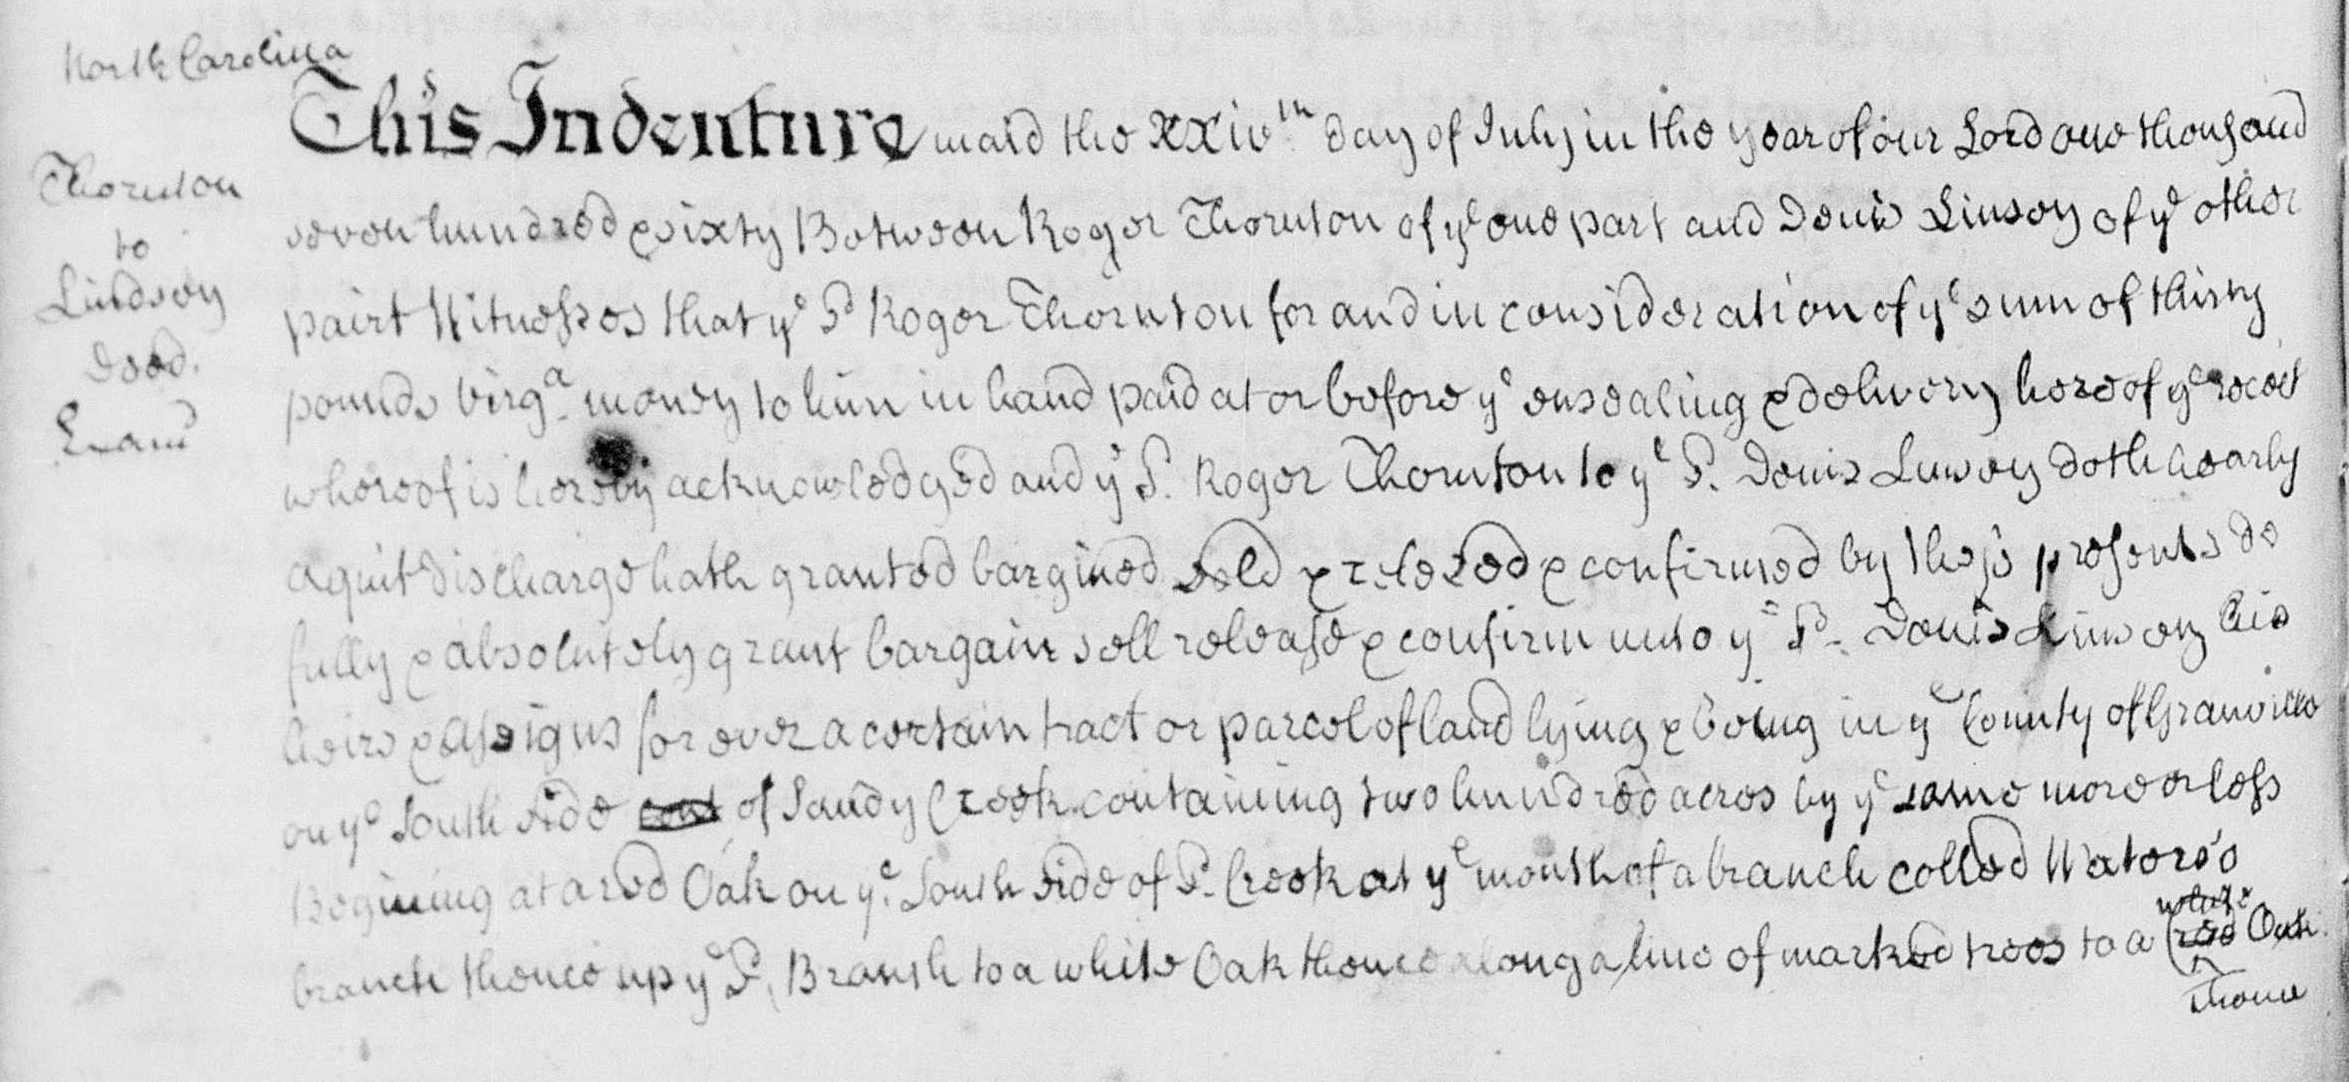 North Carolina
This Indenture maid the XXIVth day of July in the year of our Lord one thousand
Thornton
seven hundred & sixty Between Roger Thornton of ye one part and Denis Linsey of ye other
to
Lindsey
pairt Witnesses that ye Sd Roger Thornton for and in consideration of ye sum of thirty
Deed.
pounds Virga. money to him in hand paid at or before ye ensealing & delivery hereof ye receit
Examd
whereof is hereby acknowledged and ye Sd. Roger Thornton to ye Sd. Denis Linsey doth hearby
aquit discharge hath granted bargined sold & relesed & confirmed by thes presents do
fully & absolutely grant bargain sell release & confirm unto ye Sd. Denis Linsey his
heirs & assigns for ever a certain tract or parcel of land lying & being in ye County of Granville
on ye South side of Sandy Creek containing two hundred acres by ye same more or less
Begining at a red Oak on ye South side of Sd. Creek at ye mouth of a branch colled Waters's
branch thence up ye Sd. Bransh to a white Oak thence along a line of marked trees to a white Oak
thence